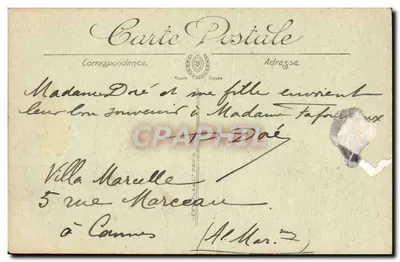 Carte Postale
Correspondance Adresse
Madame Doé et sa fille envoient
leur bon souvenir à Madame
CPAPHIL
Doé
Villa Marcelle
5 rue Marceau
à Cannes (Al. Mar.)